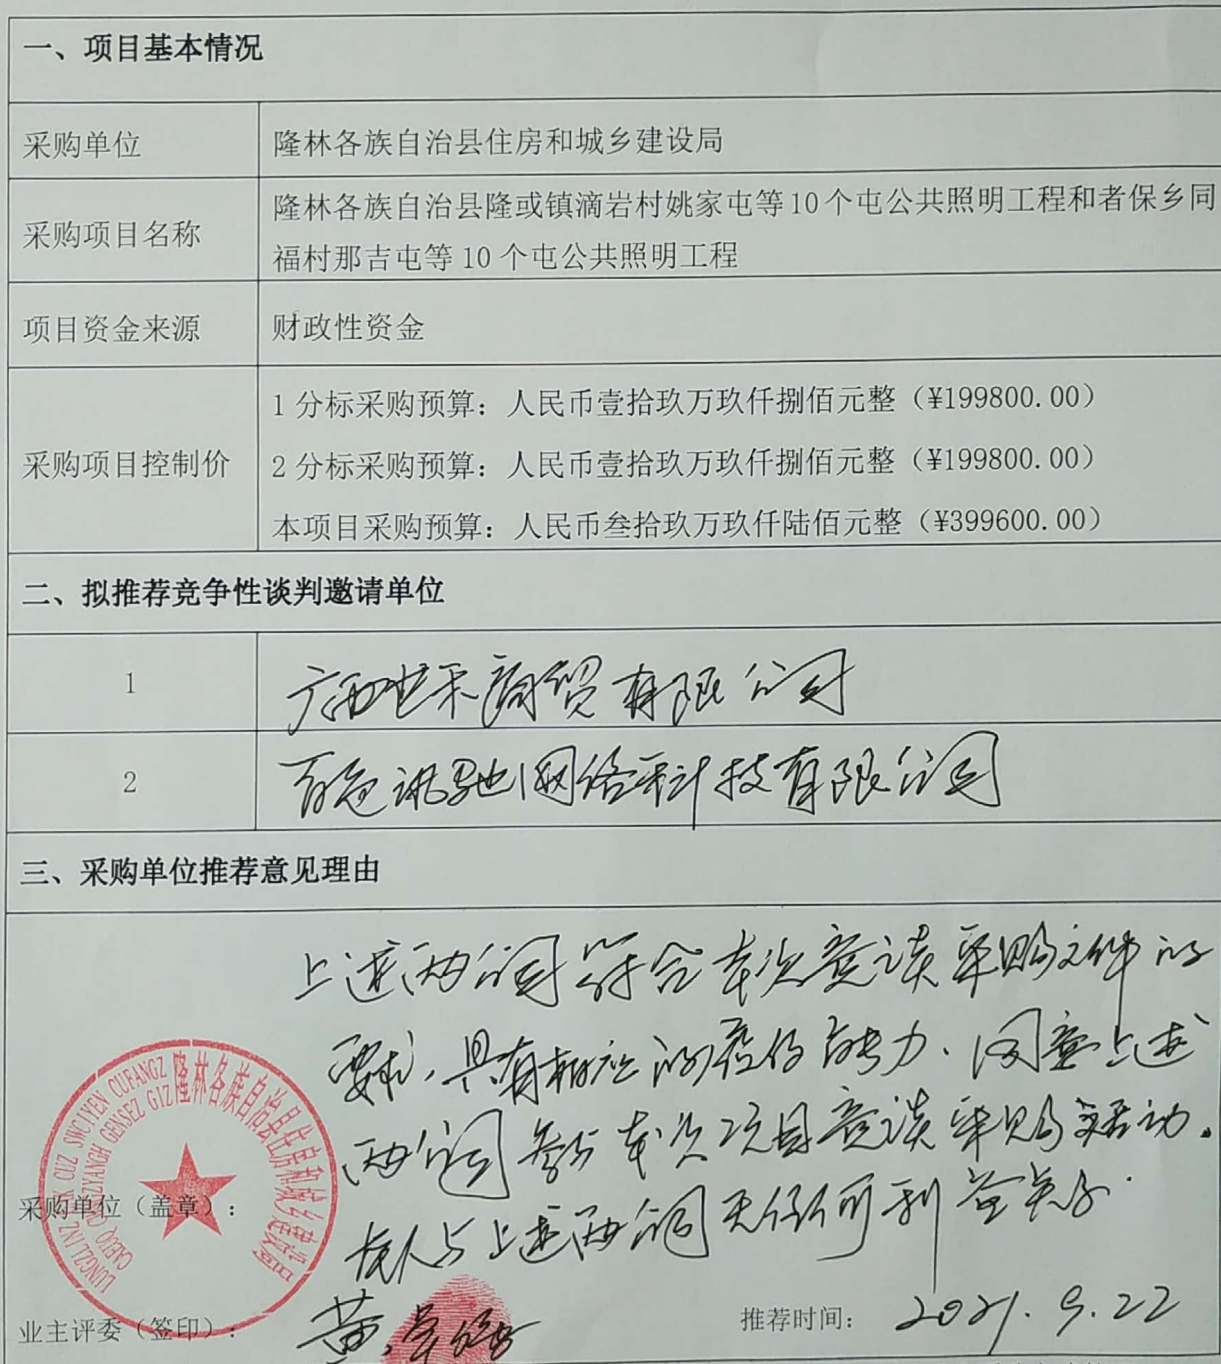 一、项目基本情况
采购单位
隆林各族自治县住房和城乡建设局
采购项目名称
隆林各族自治县隆或镇滴岩村姚家屯等10个屯公共照明工程和者保乡同
福村那吉屯等10个屯公共照明工程
项目资金来源
财政性资金
采购项目控制价
1分标采购预算：人民币壹拾玖万玖仟捌佰元整（¥199800.00）
2分标采购预算：人民币壹拾玖万玖仟捌佰元整（¥199800.00）
本项目采购预算：人民币叁拾玖万玖仟陆佰元整（¥399600.00）
二、拟推荐竞争性谈判邀请单位
1
广西世禾商贸有限公司
2
百色讯驰网络科技有限公司
三、采购单位推荐意见理由
上述两公司符合本次竞谈采购文件的
要求，具有相应的履约能力，同意上述
两公司参与本次项目竞谈采购活动。
本人与上述两公司无任何利益关系.
隆林各族自治县住房和城乡建设局
采购单位（盖章）：
业主评委（签印）：
黄
推荐时间：
2021.9.22